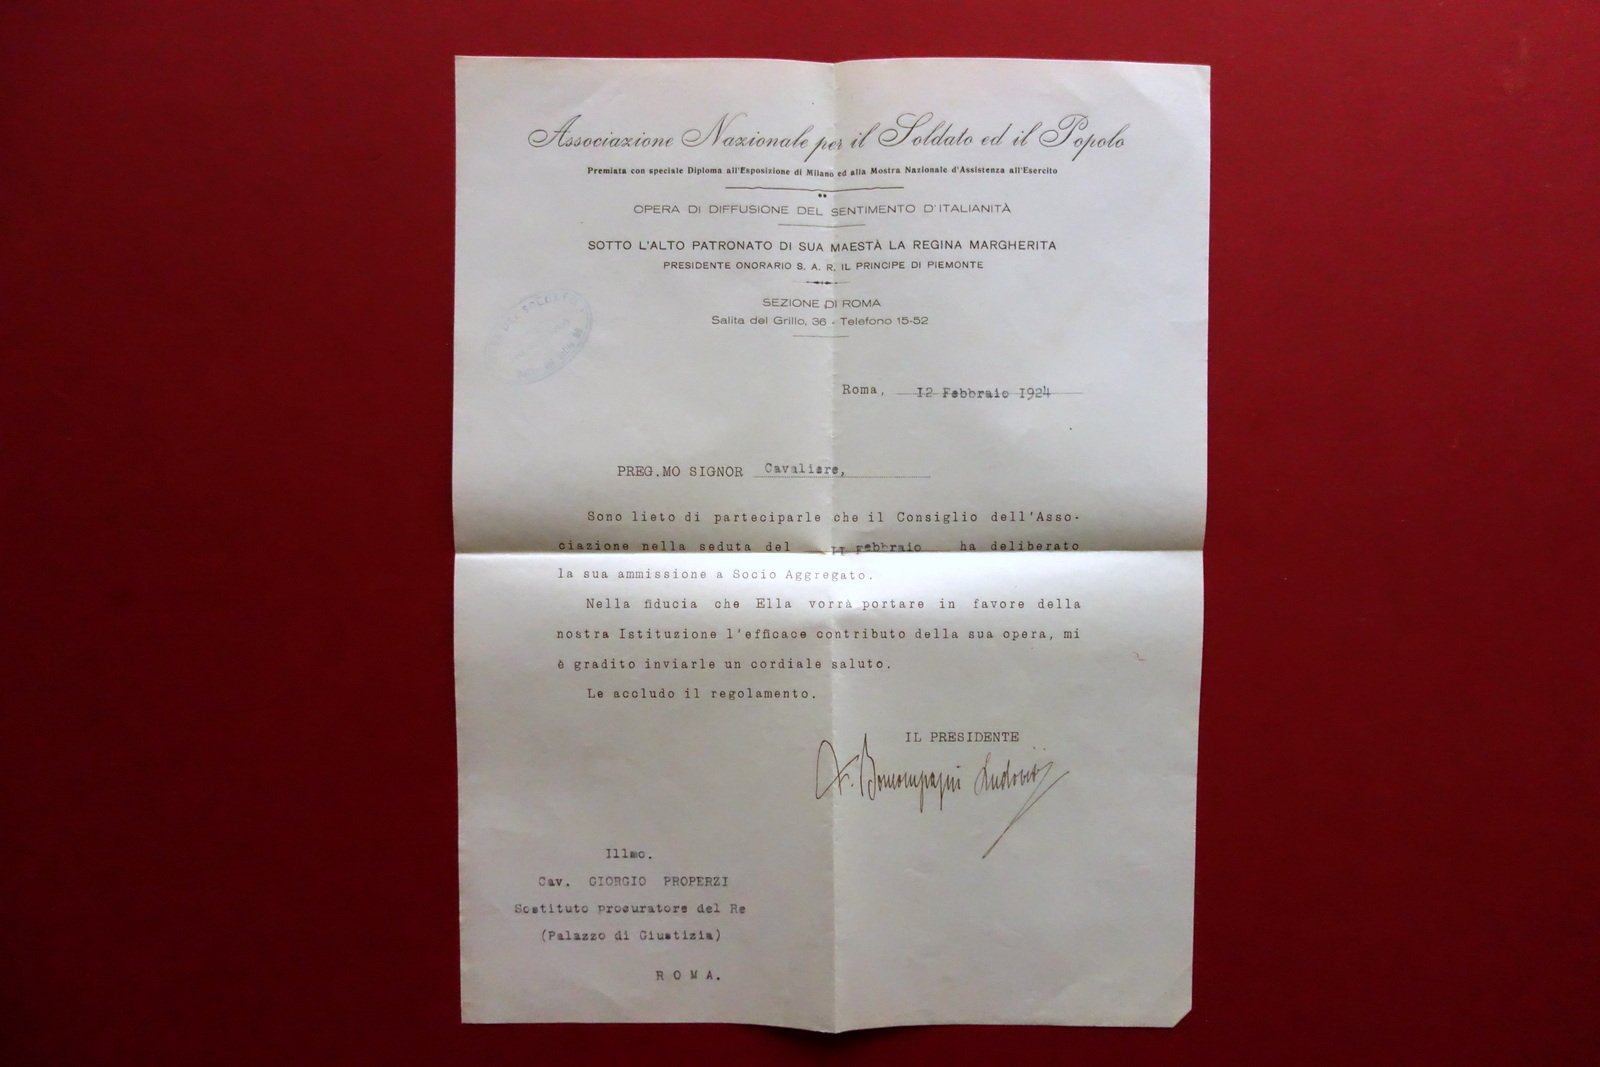 Associazione Nazionale per il Soldato ed il Popolo
Premiata con speciale Diploma all'Esposizione di Milano ed alla Mostra Nazionale d'Assistenza all'Esercito
OPERA DI DIFFUSIONE DEL SENTIMENTO D'ITALIANITÀ
SOTTO L'ALTO PATRONATO DI SUA MAESTÀ LA REGINA MARGHERITA
PRESIDENTE ONORARIO S. A. R. IL PRINCIPE DI PIEMONTE
SEZIONE DI ROMA
Salita del Grillo, 36 - Telefono 15-52
Roma, 12 Febbraio 1924
PREG.MO SIGNOR Cavaliere,
Sono lieto di parteciparle che il Consiglio dell'Asso-
ciazione nella seduta del II Febbraio ha deliberato
la sua ammissione a Socio Aggregato.
Nella fiducia che Ella vorrà portare in favore della
nostra Istituzione l'efficace contributo della sua opera, mi
è gradito inviarle un cordiale saluto.
Le accludo il regolamento.
IL PRESIDENTE
F. Boncompagni Ludovisi
Illmo.
Cav. GIORGIO PROPERZI
Sostituto procuratore del Re
(Palazzo di Giustizia)
ROMA.